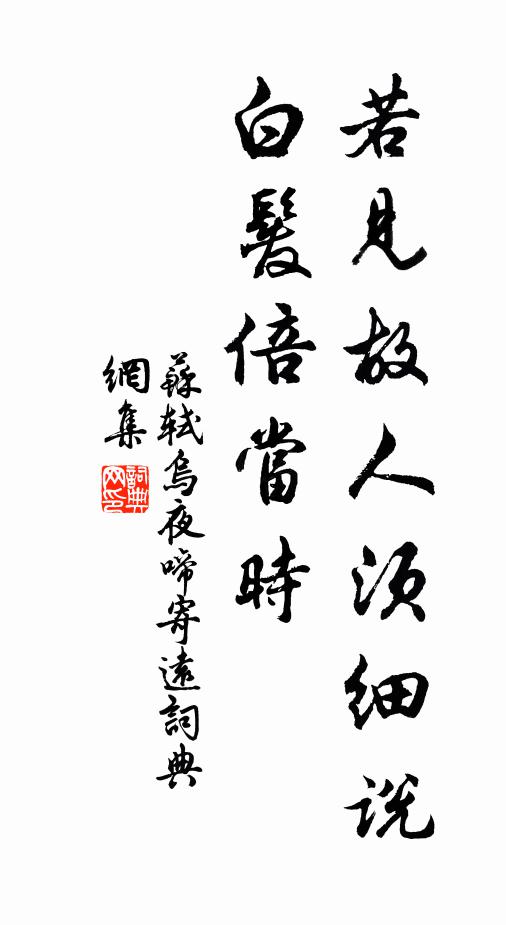 若見故人須細說
白髮倍當時
蘇軾烏夜啼寄遠詞典
網集
詞典
网印